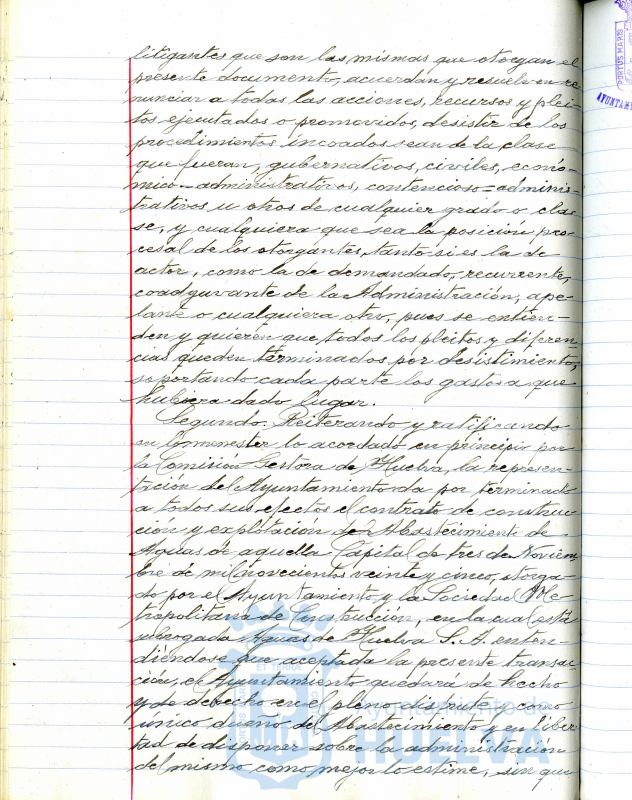 litigantes que son las mismas que otorgan el
presente documento, acuerdan y resuelven re
nunciar a todas las acciones, recursos y plei
tos ejecutados o promovidos, desistir de los
procedimientos incoados sean de la clase
que fueran, gubernativos, civiles, econó-
mico-administrativos, contencioso=adminis-
trativos u otros de cualquier grado o cla-
se, y cualquiera que sea la posición pro
cesal de los otorgantes, tanto si es la de
actor, como la de demandado, recurrente,
coadyuvante de la Administración, ape-
lante o cualquiera otro, pues se entien-
den y quieren que todos los pleitos y diferen
cias queden terminados por desistimiento,
soportando cada parte los gastos a que
hubiera dado lugar.
Segundo. Reiterando y ratificando
en lo menester lo acordado en principio por
la Comisión Gestora de Huelva, la represen-
tación del Ayuntamiento da por terminado
a todos sus efectos el contrato de construc
ción y explotación del Abastecimiento de
Aguas de aquella Capital de tres de Noviem
bre de mil novecientos veinte y cinco, otorga-
do por el Ayuntamiento y la Sociedad Me-
tropolitana de Construcción, en la cual está
subrogada Aguas de Huelva S. A. enten-
diéndose que aceptada la presente transac-
ción, el Ayuntamiento quedará de hecho
y de derecho en el pleno disfrute y como
único dueño del Abastecimiento y en liber
tad de disponer sobre la administración
del mismo como mejor lo estime, sin que
PORTUS MARIS
AYUNTAM
ET TERRÆ
Ayuntamiento de
HUELVA